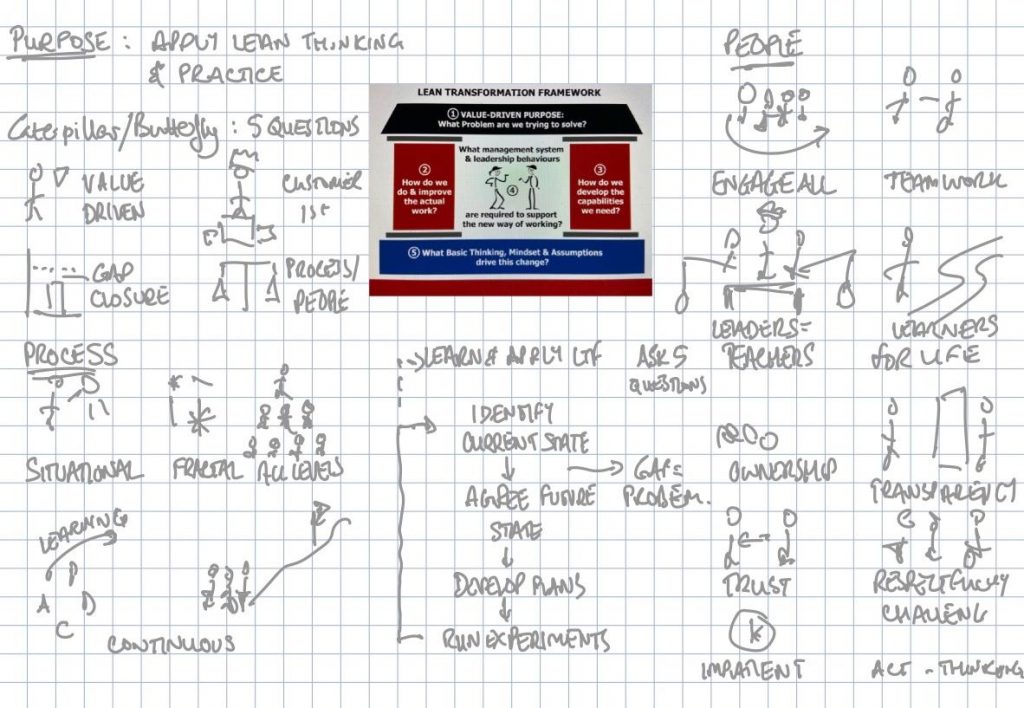 PURPOSE : APPLY LEAN THINKING
& PRACTICE
Caterpillar/Butterfly : 5 QUESTIONS
VALUE
DRIVEN
CUSTOMER
1ST
GAP
CLOSURE
PROCESS/
PEOPLE
LEAN TRANSFORMATION FRAMEWORK
① VALUE-DRIVEN PURPOSE:
What Problem are we trying to solve?
②
How do we
do & improve
the actual
work?
What management system
& leadership behaviours
④
are required to support
the new way of working?
③
How do we
develop the
capabilities
we need?
⑤ What Basic Thinking, Mindset & Assumptions
drive this change?
PEOPLE
ENGAGE ALL
TEAMWORK
LEADERS =
TEACHERS
LEARNERS
FOR LIFE
OWNERSHIP
TRANSPARENCY
TRUST
RESPECTFULLY
CHALLENG
IMPATIENT
ACT - THINKING
K
PROCESS
SITUATIONAL
FRACTAL
ALL LEVELS
LEARNING
P
A D
C
CONTINUOUS
LEARN & APPLY LTF
ASK 5
QUESTIONS
IDENTIFY
CURRENT STATE
AGREE FUTURE
STATE
GAP =
PROBLEM.
DEVELOP PLANS
RUN EXPERIMENTS